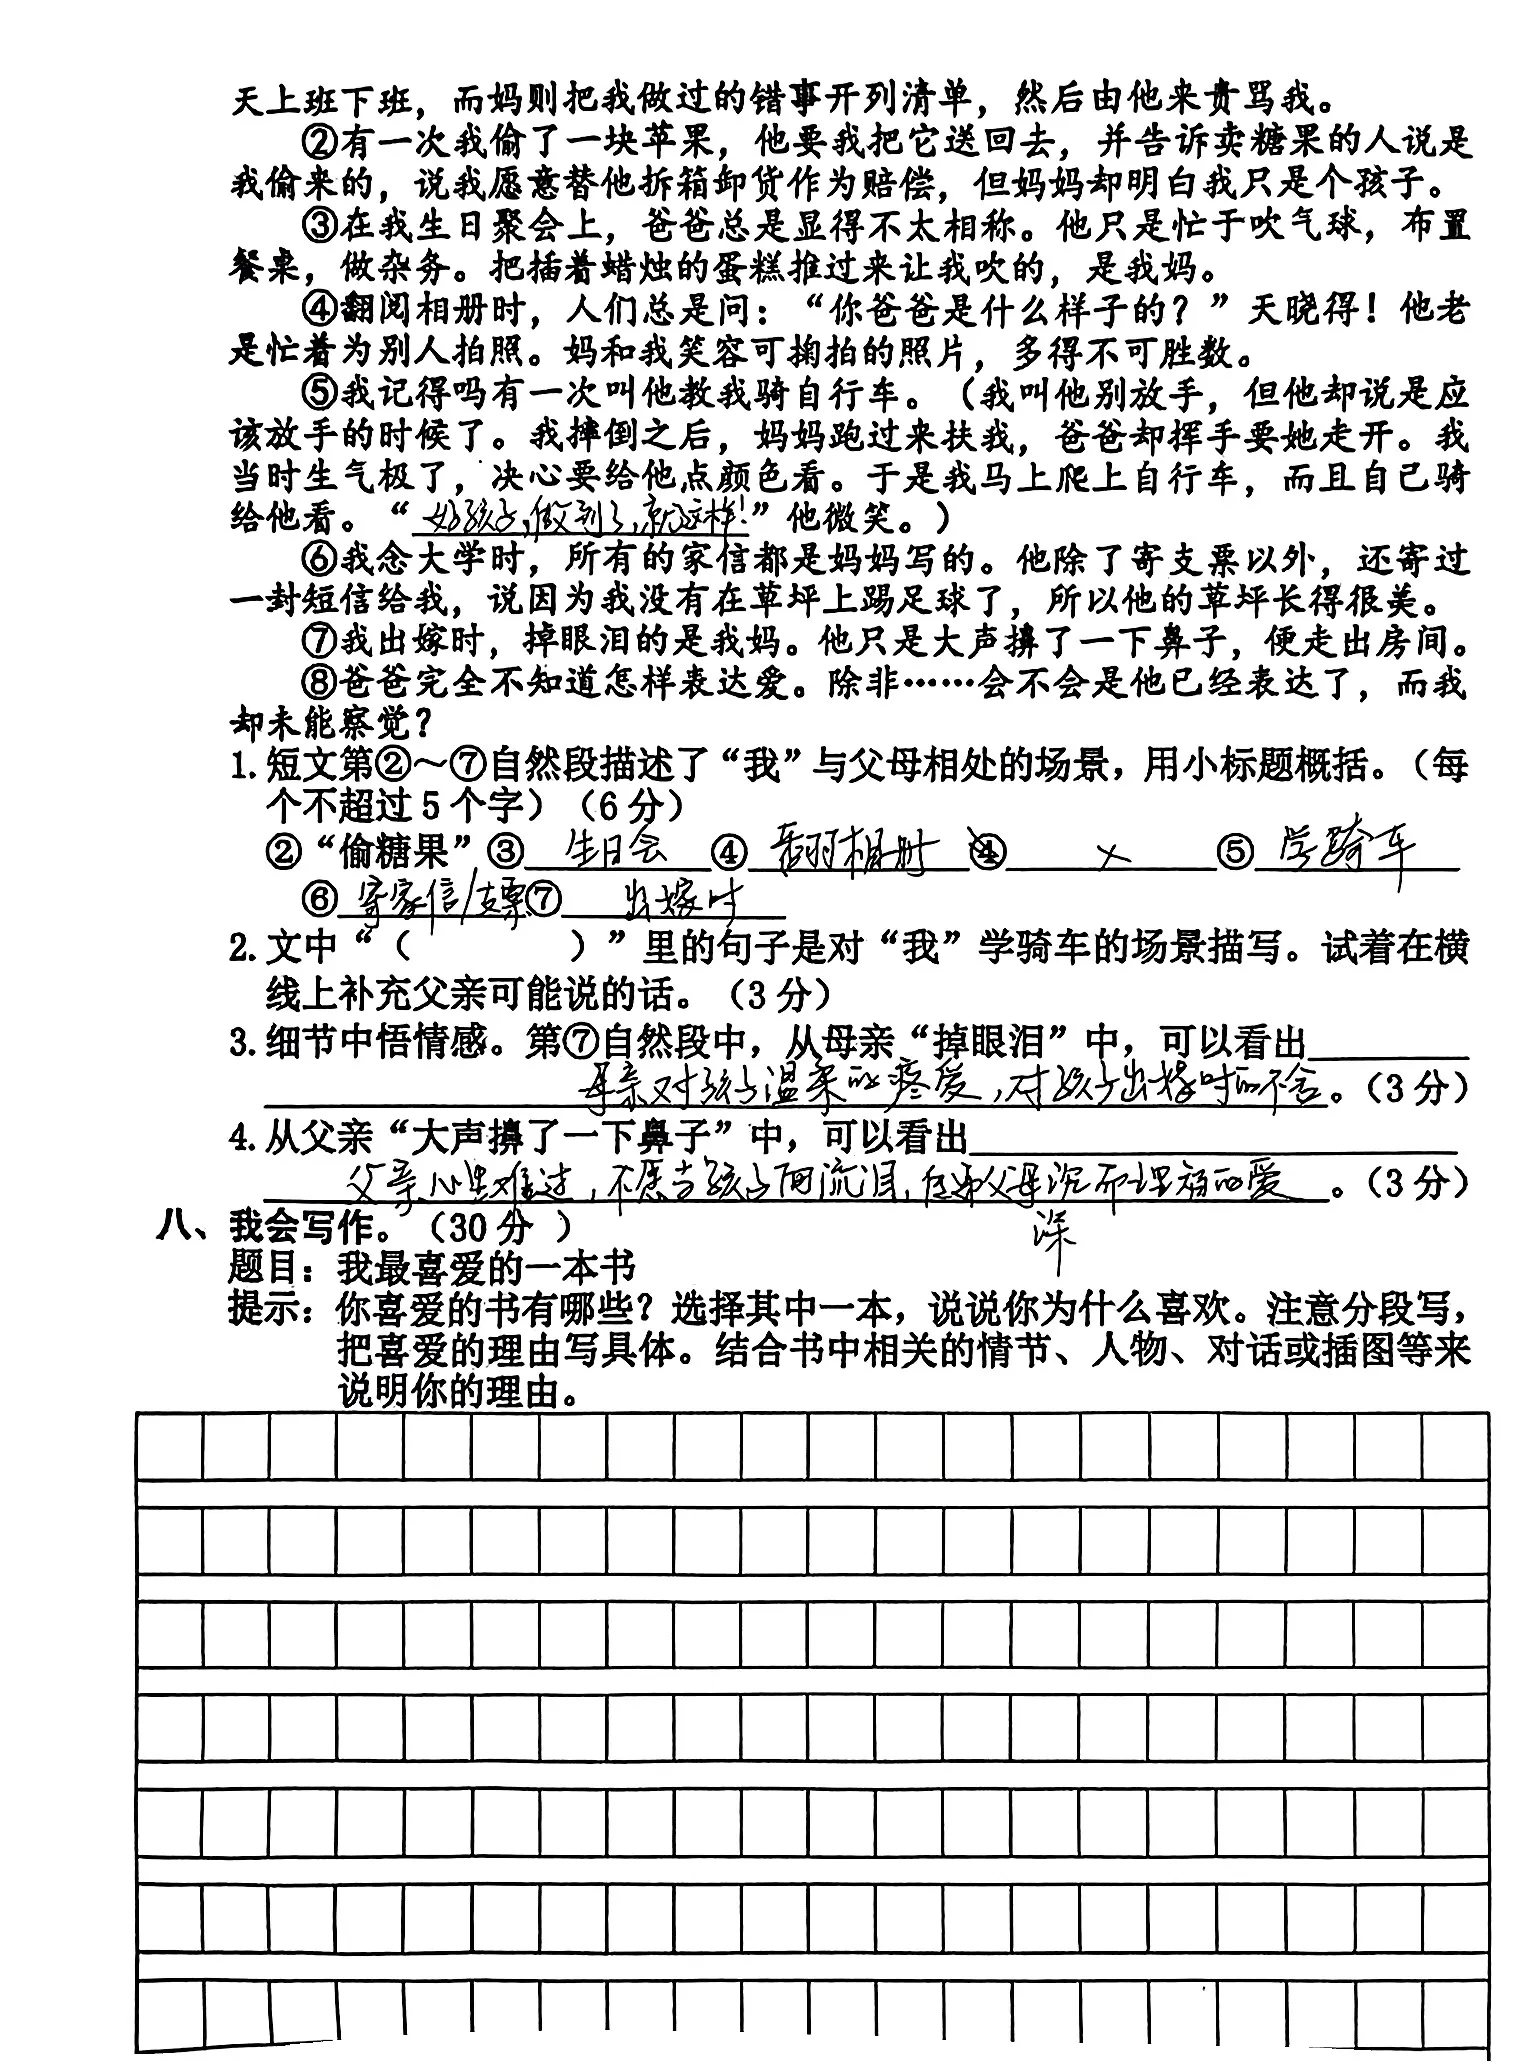 天上班下班，而妈则把我做过的错事开列清单，然后由他来责骂我。
②有一次我偷了一块苹果，他要我把它送回去，并告诉卖糖果的人说是
我偷来的，说我愿意替他拆箱卸货作为赔偿，但妈妈却明白我只是个孩子。
③在我生日聚会上，爸爸总是显得不太相称。他只是忙于吹气球，布置
餐桌，做杂务。把插着蜡烛的蛋糕推过来让我吹的，是我妈。
④翻阅相册时，人们总是问：“你爸爸是什么样子的？”天晓得！他老
是忙着为别人拍照。妈和我笑容可掬拍的照片，多得不可胜数。
⑤我记得吗有一次叫他教我骑自行车。（我叫他别放手，但他却说是应
该放手的时候了。我摔倒之后，妈妈跑过来扶我，爸爸却挥手要她走开。我
当时生气极了，决心要给他点颜色看。于是我马上爬上自行车，而且自己骑
给他看。“好孩子，做到了，就这样！”他微笑。）
⑥我念大学时，所有的家信都是妈妈写的。他除了寄支票以外，还寄过
一封短信给我，说因为我没有在草坪上踢足球了，所以他的草坪长得很美。
⑦我出嫁时，掉眼泪的是我妈。他只是大声擤了一下鼻子，便走出房间。
⑧爸爸完全不知道怎样表达爱。除非……会不会是他已经表达了，而我
却未能察觉？
1.短文第②～⑦自然段描述了“我”与父母相处的场景，用小标题概括。（每
个不超过5个字）（6分）
②“偷糖果”③生日会④翻相册④×⑤学骑车
⑥寄家信/支票⑦出嫁时
2.文中“（ ）”里的句子是对“我”学骑车的场景描写。试着在横
线上补充父亲可能说的话。（3分）
3.细节中悟情感。第⑦自然段中，从母亲“掉眼泪”中，可以看出
母亲对孩子温柔的疼爱，对孩子出嫁时的不舍。（3分）
4.从父亲“大声擤了一下鼻子”中，可以看出
父亲心里难过，不愿当孩子面流泪，父母沉而的爱。（3分）
深
八、我会写作。（30分）
题目：我最喜爱的一本书
提示：你喜爱的书有哪些？选择其中一本，说说你为什么喜欢。注意分段写，
把喜爱的理由写具体。结合书中相关的情节、人物、对话或插图等来
说明你的理由。